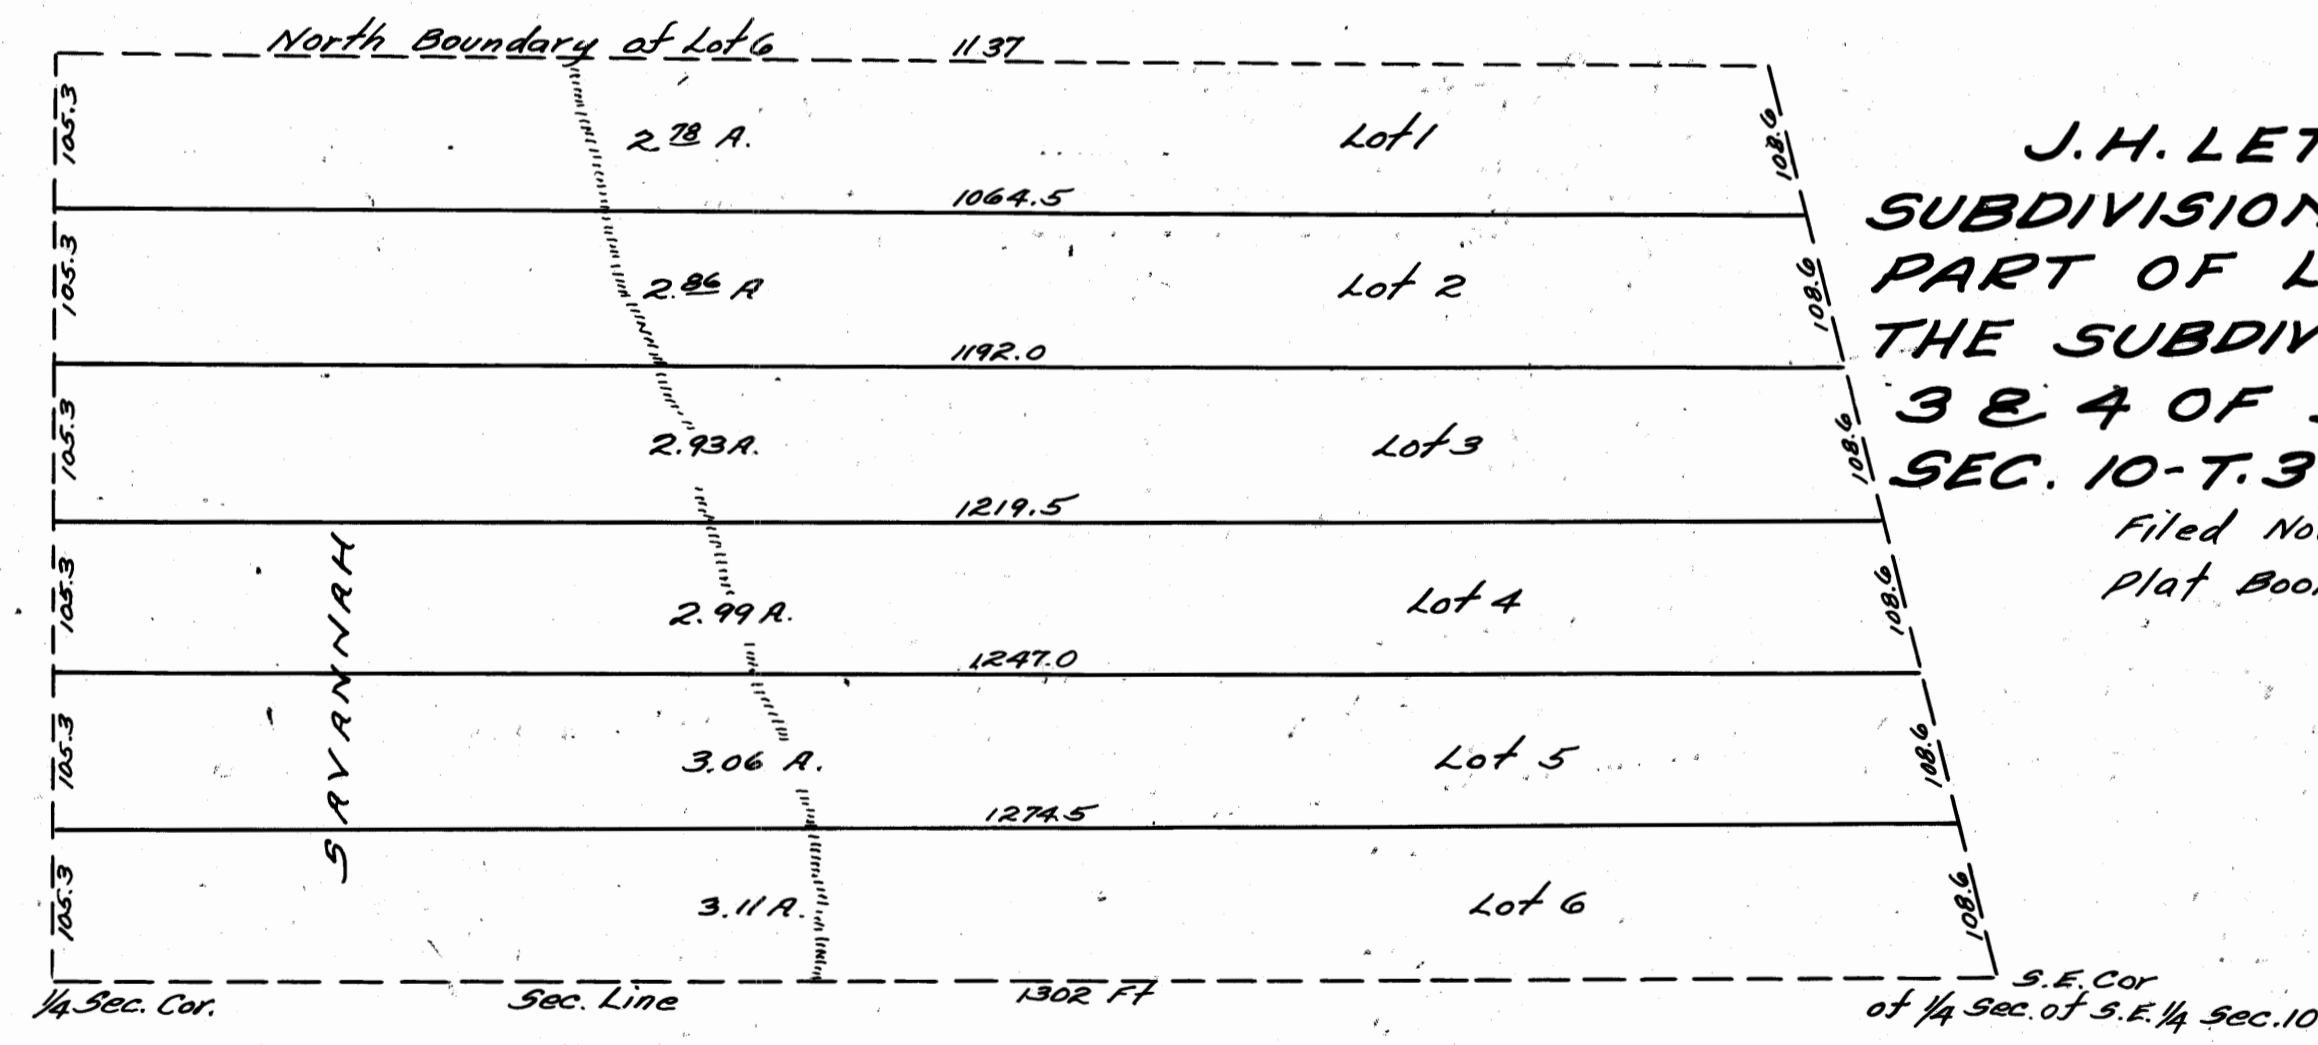 North Boundary of Lot 6 1137
105.3 2 78 A. Lot 1 108.6
1064.5
105.3 2.86 A Lot 2 108.6
1192.0
105.3 2.93 A. Lot 3 108.6
1219.5
105.3 2.99 A. Lot 4 108.6
1247.0
105.3 3.06 A. Lot 5 108.6
1274.5
105.3 3.11 A. Lot 6 108.6
SAVANNAH
1/4 Sec. Cor. Sec. Line 1302 Ft
S.E. Cor
of 1/4 Sec. of S.E. 1/4 Sec. 10
J.H. LET
SUBDIVISION
PART OF L
THE SUBDIV
3 & 4 OF
SEC. 10-T.3
Filed No
Plat Boo